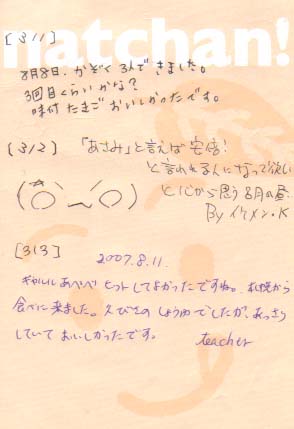 natchan!
[311]
8月8日. かぞく3人で きました。
3回目くらいかな?
味付たまごおいしかったです。
[312]
「あさみ」と言えば 安倍!
と言われる人になって欲しい
と心から思う8月の昼.
By イケメン・K
[313]
2007.8.11.
ギャルル あべべ ヒットしてよかったですね。札幌から
食べに来ました。えびきのしょうゆでしたが、あっさり
していておいしかったです。
teacher